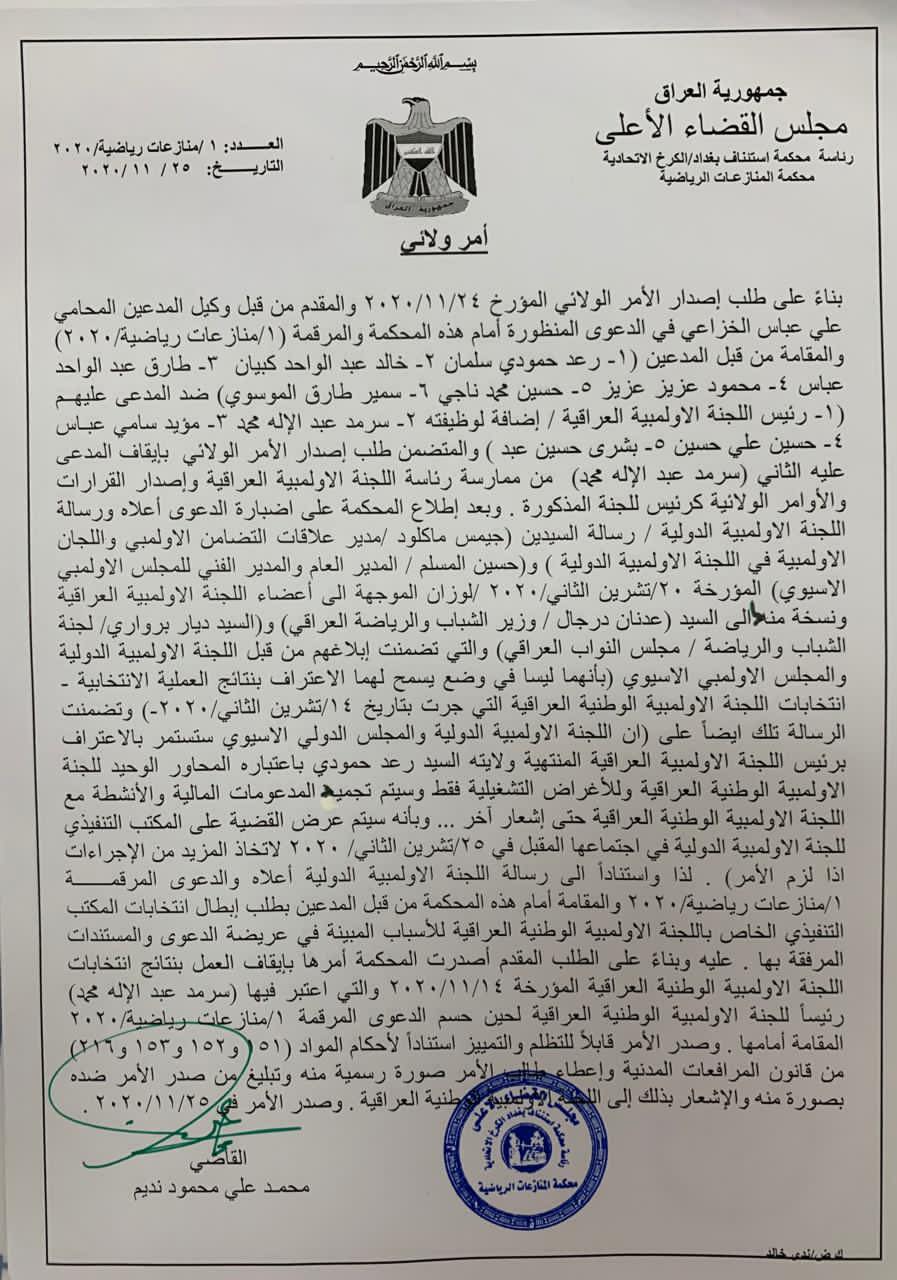 بسم الله الرحمن الرحيم
جمهورية العراق
مجلس القضاء الأعلى
رئاسة محكمة استئناف بغداد/الكرخ الاتحادية
محكمة المنازعات الرياضية
العـــدد: ١ /منازعات رياضية/٢٠٢٠
التاريـــخ: ٢٥ / ١١ /٢٠٢٠
جمهورية العراق
أمر ولائي
بناءً على طلب إصدار الأمر الولائي المؤرخ ٢٠٢٠/١١/٢٤ والمقدم من قبل وكيل المدعين المحامي
علي عباس الخزاعي في الدعوى المنظورة أمام هذه المحكمة والمرقمة (١/منازعات رياضية/٢٠٢٠)
والمقامة من قبل المدعين (١- رعد حمودي سلمان ٢- خالد عبد الواحد كبيان ٣- طارق عبد الواحد
عباس ٤- محمود عزيز عزيز ٥- حسين محمد ناجي ٦- سمير طارق الموسوي) ضد المدعى عليهم
(١- رئيس اللجنة الاولمبية العراقية / إضافة لوظيفته ٢- سرمد عبد الإله محمد ٣- مؤيد سامي عباس
٤- حسين علي حسين ٥- بشرى حسين عبد ) والمتضمن طلب إصدار الأمر الولائي بإيقاف المدعى
عليه الثاني (سرمد عبد الإله محمد) من ممارسة رئاسة اللجنة الاولمبية العراقية وإصدار القرارات
والأوامر الولائية كرئيس للجنة المذكورة . وبعد إطلاع المحكمة على اضبارة الدعوى أعلاه ورسالة
اللجنة الاولمبية الدولية / رسالة السيدين (جيمس ماكلود /مدير علاقات التضامن الاولمبي واللجان
الاولمبية في اللجنة الاولمبية الدولية ) و(حسين المسلم / المدير العام والمدير الفني للمجلس الاولمبي
الاسيوي) المؤرخة ٢٠/تشرين الثاني/٢٠٢٠ /لوزان الموجهة الى أعضاء اللجنة الاولمبية العراقية
ونسخة منه الى السيد (عدنان درجال / وزير الشباب والرياضة العراقي) و(السيد ديار برواري/ لجنة
الشباب والرياضة / مجلس النواب العراقي) والتي تضمنت إبلاغهم من قبل اللجنة الاولمبية الدولية
والمجلس الاولمبي الاسيوي (بأنهما ليسا في وضع يسمح لهما الاعتراف بنتائج العملية الانتخابية -
انتخابات اللجنة الاولمبية الوطنية العراقية التي جرت بتاريخ ١٤/تشرين الثاني/٢٠٢٠-) وتضمنت
الرسالة تلك ايضاً على (ان اللجنة الاولمبية الدولية والمجلس الدولي الاسيوي ستستمر بالاعتراف
برئيس اللجنة الاولمبية العراقية المنتهية ولايته السيد رعد حمودي باعتباره المحاور الوحيد للجنة
الاولمبية الوطنية العراقية وللأغراض التشغيلية فقط وسيتم تجميد المدعومات المالية والأنشطة مع
اللجنة الاولمبية الوطنية العراقية حتى إشعار أخر ... وبأنه سيتم عرض القضية على المكتب التنفيذي
للجنة الاولمبية الدولية في اجتماعها المقبل في ٢٥/تشرين الثاني/ ٢٠٢٠ لاتخاذ المزيد من الإجراءات
اذا لزم الأمر) . لذا واستناداً الى رسالة اللجنة الاولمبية الدولية أعلاه والدعوى المرقمـــة
١/منازعات رياضية/٢٠٢٠ والمقامة أمام هذه المحكمة من قبل المدعين بطلب إبطال انتخابات المكتب
التنفيذي الخاص باللجنة الاولمبية الوطنية العراقية للأسباب المبينة في عريضة الدعوى والمستندات
المرفقة بها . عليه وبناءً على الطلب المقدم أصدرت المحكمة أمرها بإيقاف العمل بنتائج انتخابات
اللجنة الاولمبية الوطنية العراقية المؤرخة ٢٠٢٠/١١/١٤ والتي اعتبر فيها (سرمد عبد الإله محمد)
رئيساً للجنة الاولمبية الوطنية العراقية لحين حسم الدعوى المرقمة ١/منازعات رياضية/٢٠٢٠
المقامة أمامها . وصدر الأمر قابلاً للتظلم والتمييز استناداً لأحكام المواد (١٥١ و١٥٢ و١٥٣ و٢١٦)
من قانون المرافعات المدنية وإعطاء طالب الأمر صورة رسمية منه وتبليغ من صدر الأمر ضده
بصورة منه والإشعار بذلك إلى اللجنة الاولمبية الوطنية العراقية . وصدر الأمر في ٢٠٢٠/١١/٢٥ .
القاضي
محمد علي محمود نديم
مجلس القضاء الأعلى
رئاسة محكمة استئناف بغداد الكرخ الاتحادية
محكمة المنازعات الرياضية
ك ض/ندى خالد